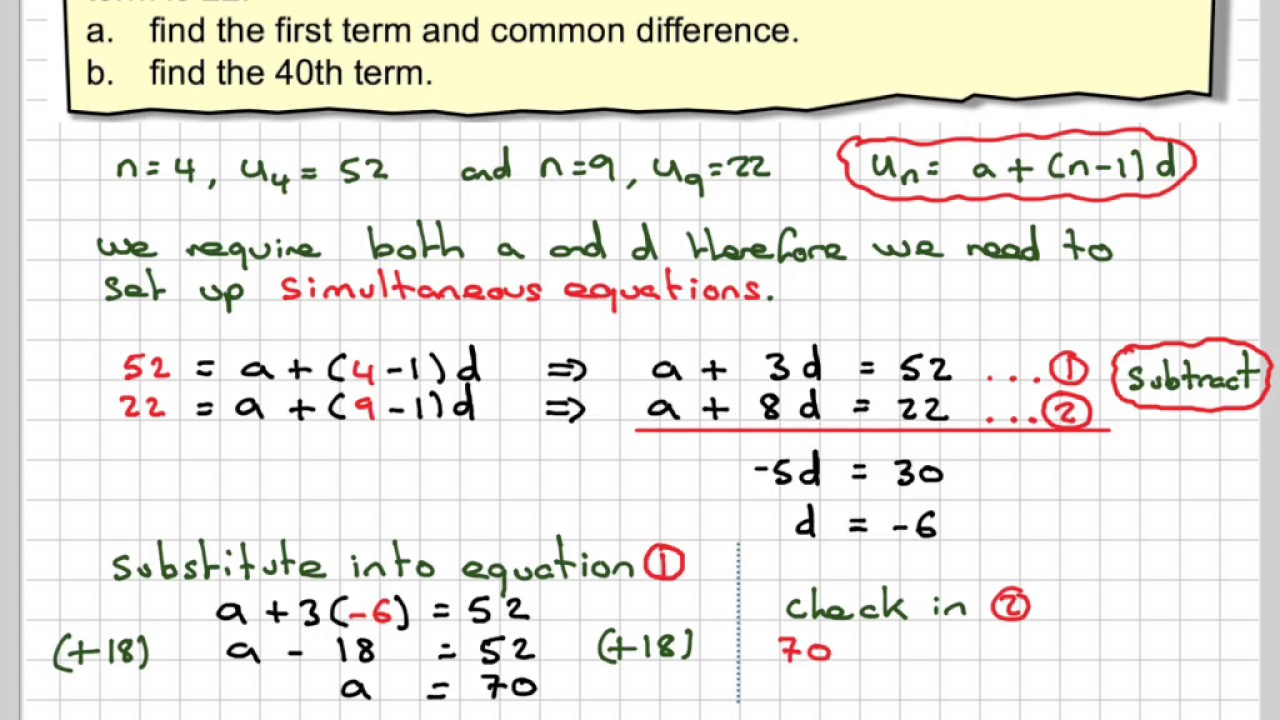 a. find the first term and common difference.
b. find the 40th term.
n = 4, u₄ = 52 and n = 9, u₉ = 22 uₙ = a + (n-1)d
we require both a and d therefore we need to
set up simultaneous equations.
52 = a + (4-1)d ⇒ a + 3d = 52 ...① subtract
22 = a + (9-1)d ⇒ a + 8d = 22 ...②
-5d = 30
d = -6
substitute into equation ①
a + 3(-6) = 52 check in ②
(+18) a - 18 = 52 (+18) 70
a = 70